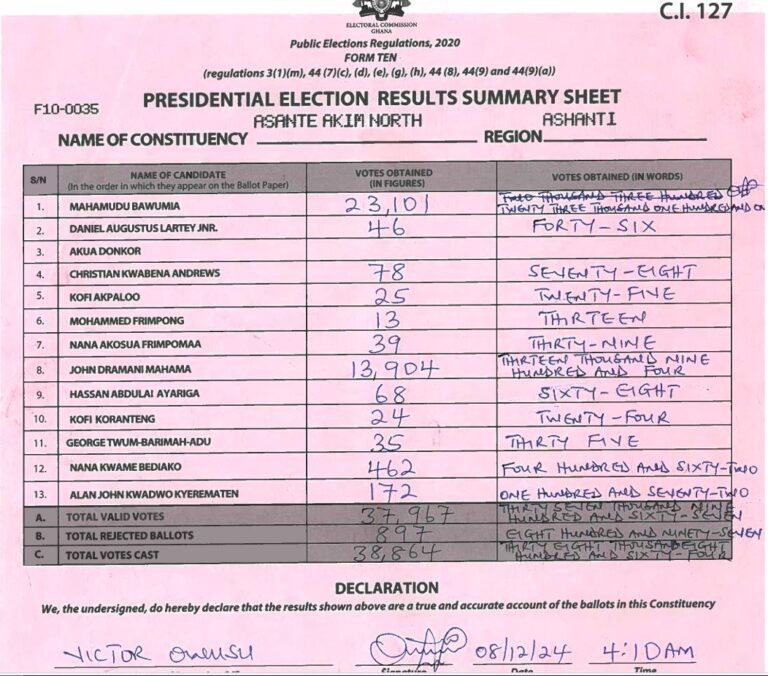 C.I. 127
ELECTORAL COMMISSION
GHANA
Public Elections Regulations, 2020
FORM TEN
(regulations 3(1)(m), 44 (7)(c), (d), (e), (g), (h), 44 (8), 44(9) and 44(9)(a))
F10-0035
PRESIDENTIAL ELECTION RESULTS SUMMARY SHEET
NAME OF CONSTITUENCY ASANTE AKIM NORTH REGION ASHANTI
S/N NAME OF CANDIDATE (In the order in which they appear on the Ballot Paper) VOTES OBTAINED (IN FIGURES) VOTES OBTAINED (IN WORDS)
1. MAHAMUDU BAWUMIA 23,101 TWO THOUSAND THREE HUNDRED
TWENTY THREE THOUSAND ONE HUNDRED AND ON
2. DANIEL AUGUSTUS LARTEY JNR. 46 FORTY-SIX
3. AKUA DONKOR
4. CHRISTIAN KWABENA ANDREWS 78 SEVENTY-EIGHT
5. KOFI AKPALOO 25 TWENTY-FIVE
6. MOHAMMED FRIMPONG 13 THIRTEEN
7. NANA AKOSUA FRIMPOMAA 39 THIRTY-NINE
8. JOHN DRAMANI MAHAMA 13,904 THIRTEEN THOUSAND NINE
HUNDRED AND FOUR
9. HASSAN ABDULAI AYARIGA 68 SIXTY-EIGHT
10. KOFI KORANTENG 24 TWENTY-FOUR
11. GEORGE TWUM-BARIMAH-ADU 35 THIRTY FIVE
12. NANA KWAME BEDIAKO 462 FOUR HUNDRED AND SIXTY-TWO
13. ALAN JOHN KWADWO KYEREMATEN 172 ONE HUNDRED AND SEVENTY-TWO
A. TOTAL VALID VOTES 37,967 THIRTY SEVEN THOUSAND NINE
HUNDRED AND SIXTY-SEVEN
B. TOTAL REJECTED BALLOTS 897 EIGHT HUNDRED AND NINETY-SEVEN
C. TOTAL VOTES CAST 38,864 THIRTY EIGHT THOUSAND EIGHT
HUNDRED AND SIXTY-FOUR
DECLARATION
We, the undersigned, do hereby declare that the results shown above are a true and accurate account of the ballots in this Constituency
VICTOR OWUSU 08/12/24 4:10AM
Signature Date Time